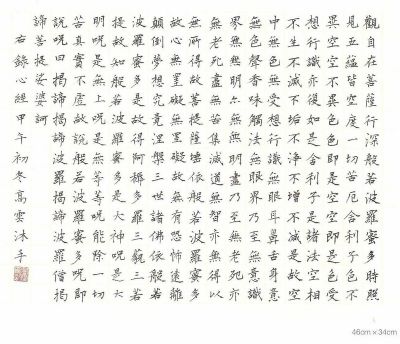 觀自在菩薩行深般若波羅蜜多時照
見五蘊皆空度一切苦厄舍利子色不
異空空不異色色即是空空即是色受
想行識亦復如是舍利子是諸法空相
不生不滅不垢不淨不增不減是故空
中無色無受想行識無眼耳鼻舌身意
無色聲香味觸法無眼界乃至無意識
界無無明亦無無明盡乃至無老死亦
無老死盡無苦集滅道無智亦無得以
無所得故菩提薩埵依般若波羅蜜多
故心無罣礙無罣礙故無有恐怖遠離
顛倒夢想究竟涅槃三世諸佛依般若
波羅蜜多故得阿耨多羅三藐三菩
提故知般若波羅蜜多是大神呪是大
明呪是無上呪是無等等呪能除一切
苦真實不虛故說般若波羅蜜多呪即
說呪曰揭諦揭諦波羅揭諦波羅僧揭
諦菩提娑婆訶
右錄心經甲午初冬高雲沐手
46cm×34cm